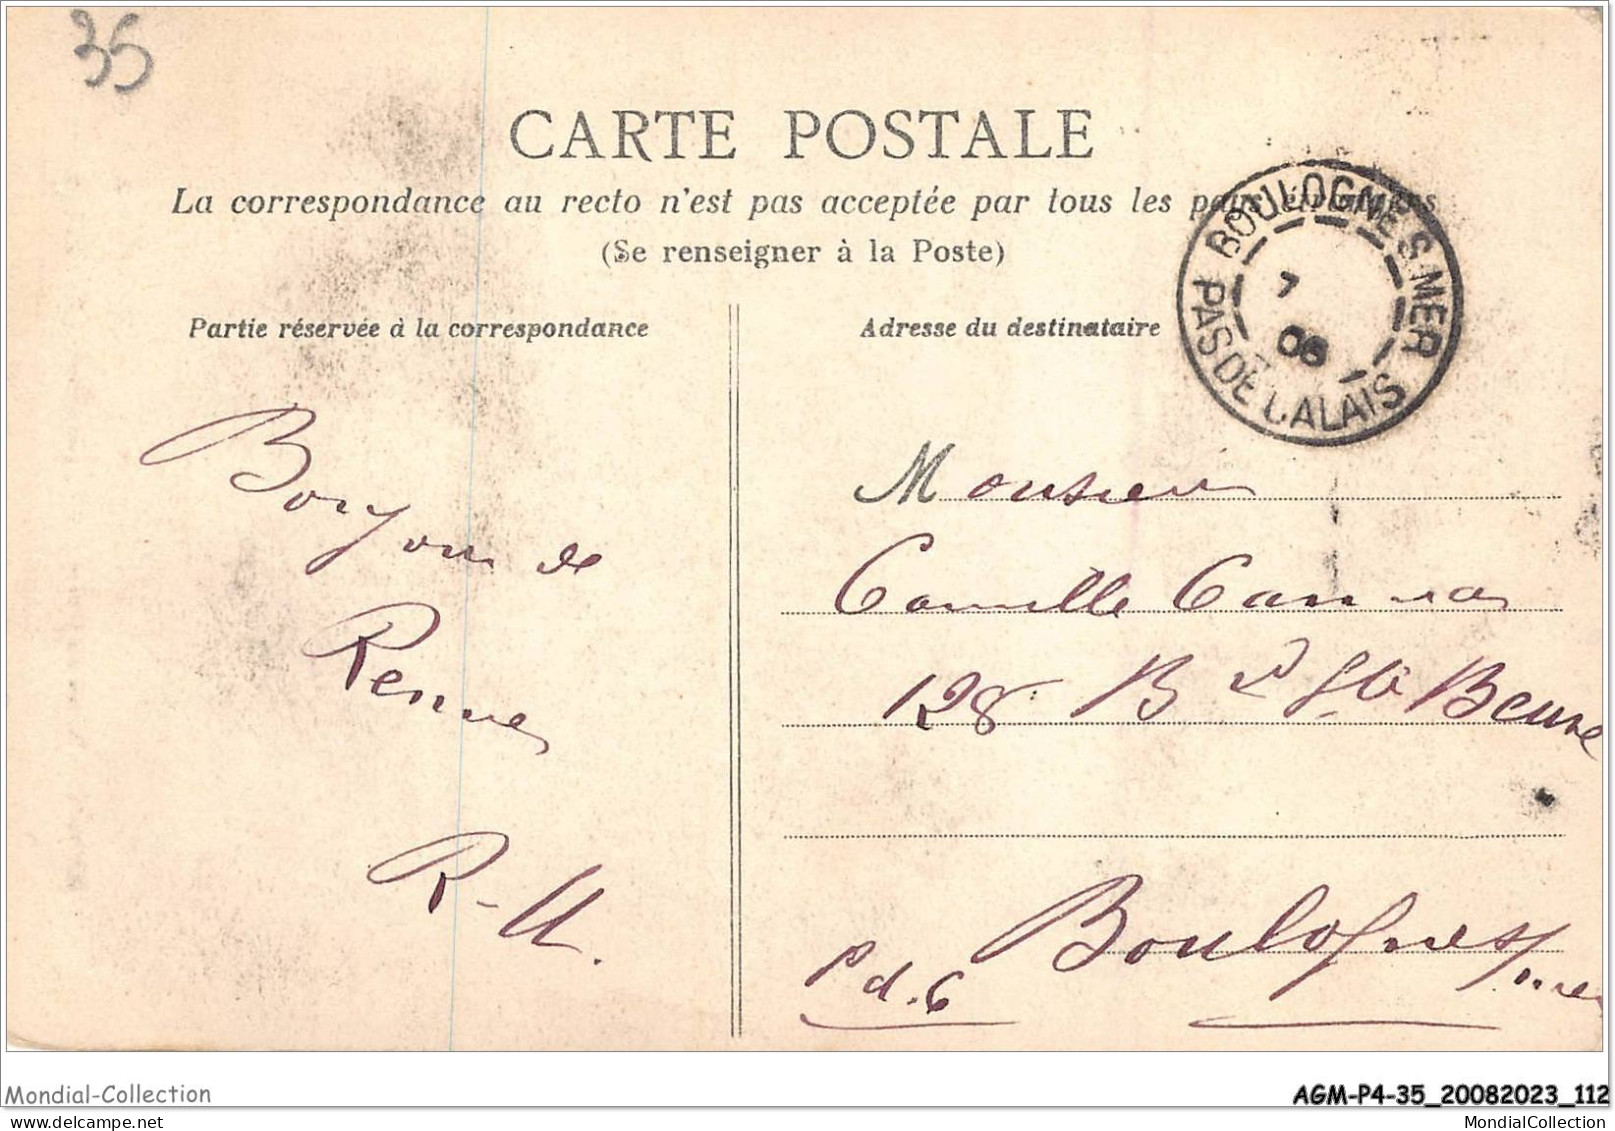 35
CARTE POSTALE
La correspondance au recto n'est pas acceptée par tous les pays étrangers
(Se renseigner à la Poste)
BOULOGNE S-MER
7
06
PAS DE CALAIS
Partie réservée à la correspondance
Adresse du destinataire
Bonjour de
Rennes
R-U.
Monsieur
Camille
128 Bd Ste Beuve
Boulogne s/mer
P d. C
Mondial-Collection
AGM-P4-35_20082023_112
MondialCollection